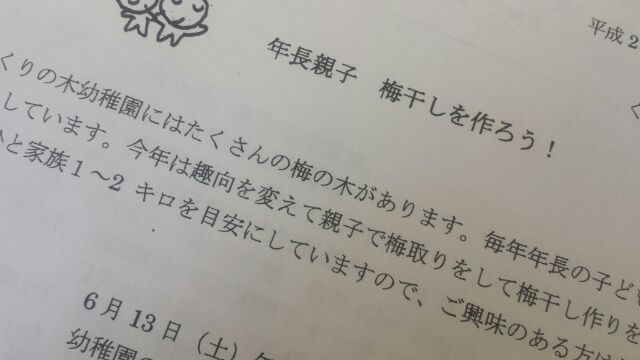 平成2
く
年長親子 梅干しを作ろう！
くりの木幼稚園にはたくさんの梅の木があります。毎年年長の子ども
しています。今年は趣向を変えて親子で梅取りをして梅干し作りを
と家族1～2 キロを目安にしていますので、ご興味のある方は
6月13日（土）
幼稚園の